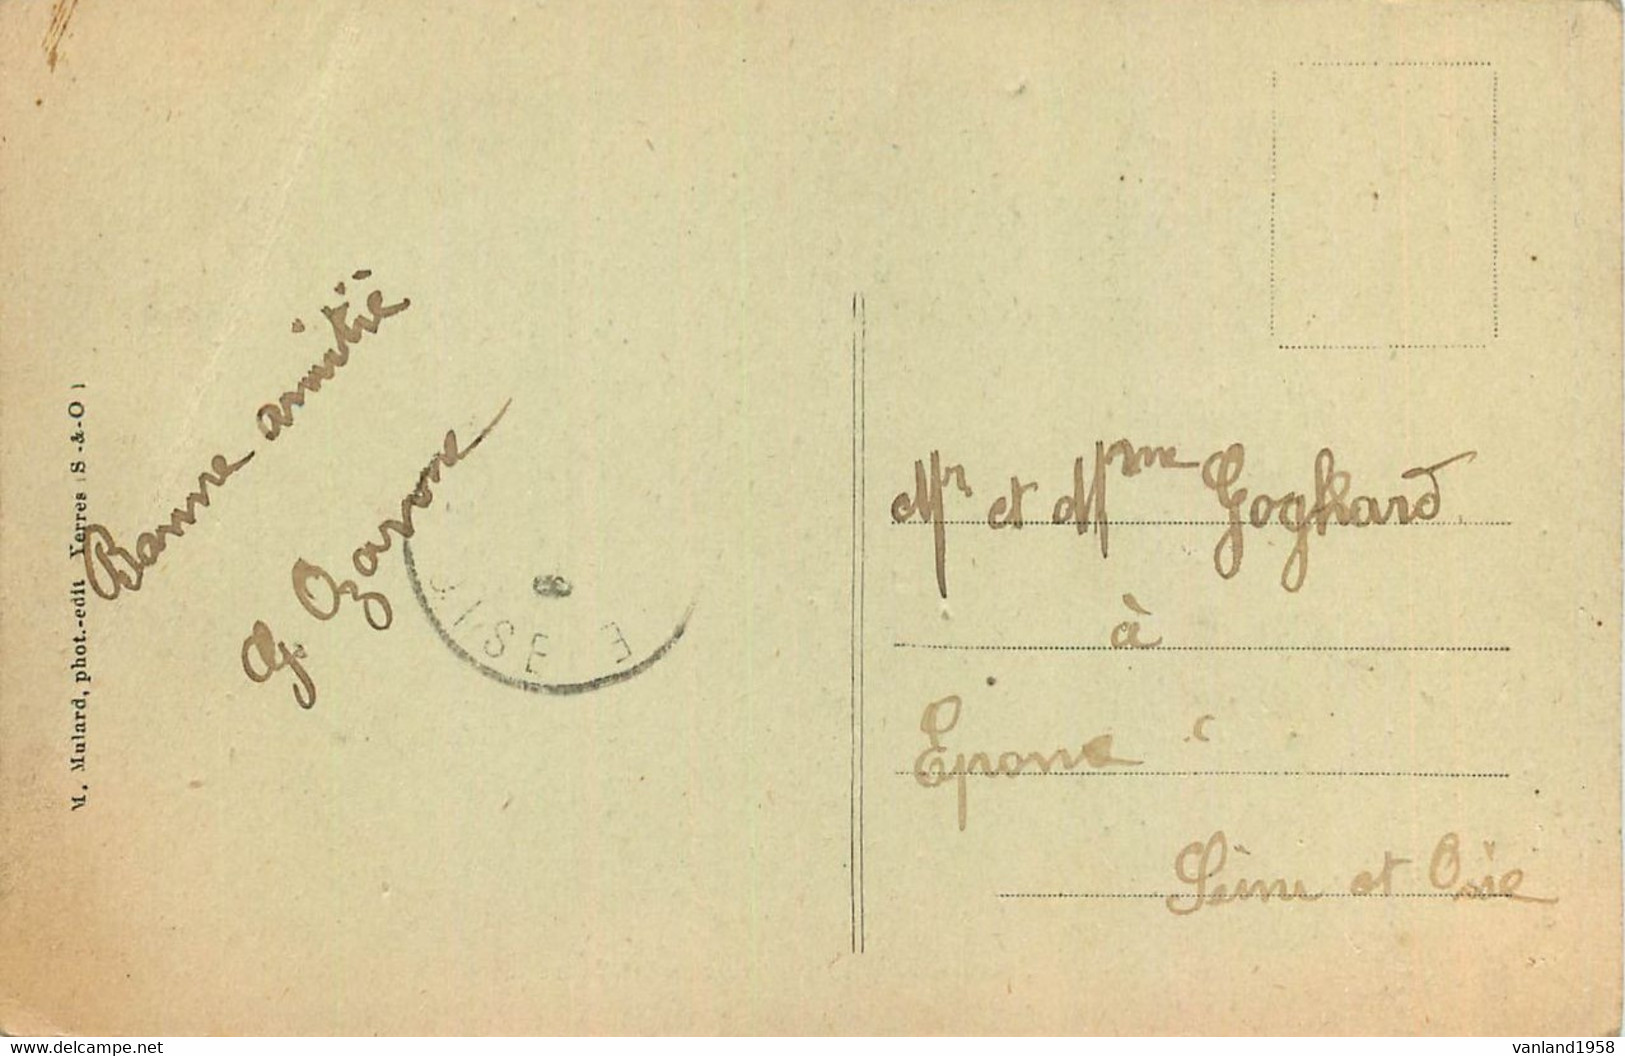 M. Mulard, phot.-edit Yerres (S.-&-O)
Bonne amitié
G. Ozanne
OISE
8
Mr et Mme Goghard
à
Epone
Seine et Oise
www.delcampe.net
vanland1958